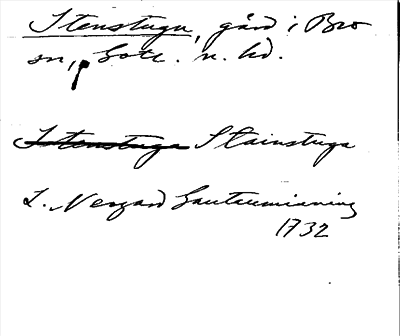 Stenstugu, gård i Bro
sn, Gotl. n. hd.
Stenstuga Stainstuga
L. Neogard Gautauminning
1732